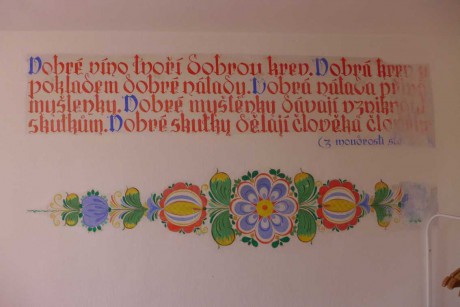 Dobré víno tvoří dobrou krev. Dobrá krev je
pokladem dobré nálady. Dobrá nálada
myšlenky. Dobré myšlenky dávají
skutkům. Dobré skutky dělají člověka
(z moudrosti